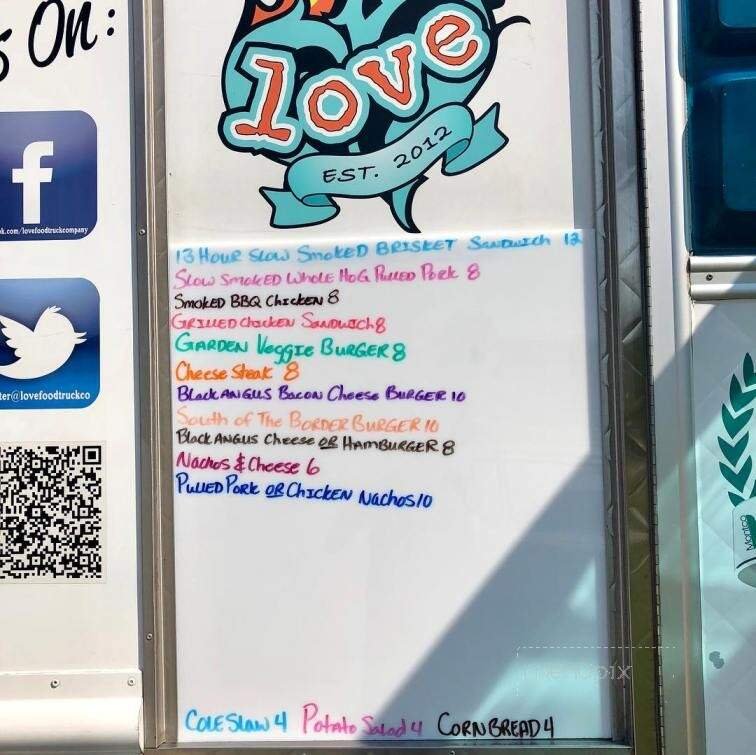 s On:
f
k.com/lovefoodtruckcompany
ter@lovefoodtruckco
love
EST. 2012
13 HOUR SLOW SMOKED BRISKET SANDWICH 12
SLOW SMOKED WHOLE HOG PULLED PORK 8
SMOKED BBQ CHICKEN 8
GRILLED Chicken SANDWICH 8
GARDEN Veggie BURGER 8
Cheese Steak 8
Black ANGUS Bacon Cheese BURGER 10
South of The BORDER BURGER 10
Black ANGUS Cheese OR HAMBURGER 8
Nachos & Cheese 6
PULLED Pork OR CHICKEN Nachos 10
COLE Slaw 4 Potato Salad 4 CORN BREAD 4
menupix